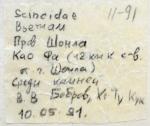 Scincidae 11-91
Вьетнам
Пров Шонла
Као Фа (12 км к с-в.
от г. Шонла)
Среди камней
В. В. Бобров, Хг Ту Кук
10.05.91.